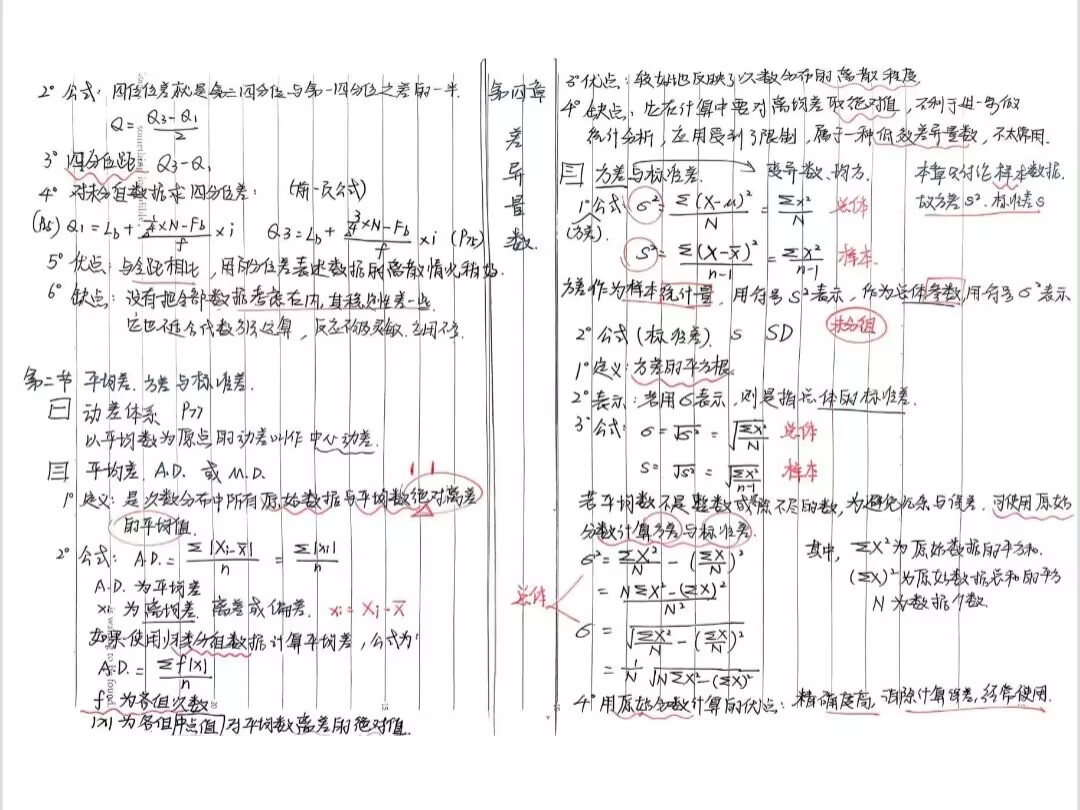 2° 公式: 四分位差就是第三四分位与第一四分位之差的一半.
Q = (Q3-Q1)/2
3° 四分位距 Q3-Q1
4° 对未分组数据求四分位差: (前一页公式)
(P25) Q1 = Lb + (1/4×N-Fb)/f ×i Q3 = Lb + (3/4×N-Fb)/f ×i (P75)
5° 优点: 与全距相比, 用四分位差表述数据的离散情况稍好.
6° 缺点: 没有把全部数据考虑在内, 其稳定性差一些.
它也不适合代数方法运算, 反应不够灵敏. 应用不多.
第二节 平均差. 方差与标准差.
一 动差体系 P77
以平均数为原点的动差叫作中心动差.
二 平均差. A.D. 或 M.D.
1° 定义: 是次数分布中所有原始数据与平均数绝对离差
的平均值.
2° 公式: A.D. = Σ|Xi-X̄|/n = Σ|xi|/n
A.D. 为平均差
xi 为离均差. 离差或偏差. xi = Xi-X̄
如果使用归类分组数据计算平均差, 公式为:
A.D. = Σf|x|/n
f 为各组次数
|x| 为各组中点值对平均数离差的绝对值.
第四章
差异量数.
3° 优点: 较好地反映了次数分布的离散程度
4° 缺点: 它在计算中要对离均差取绝对值, 不利于进一步做
统计分析, 应用受到了限制, 属于一种低效差异量数, 不太常用.
三 方差与标准差. → 变异数. 均方. 本章只讨论样本数据.
故方差S². 标准差S
1° 公式 σ² = Σ(X-μ)²/N = Σx²/N 总体
(方差)
S² = Σ(X-X̄)²/(n-1) = Σx²/(n-1) 样本
方差作为样本统计量, 用符号S²表示, 作为总体参数, 用符号σ²表示
未分组
2° 公式 (标准差). S SD
1° 定义: 方差的平方根.
2° 表示: 若用σ表示, 则是指总体的标准差.
3° 公式: σ = √σ² = √(Σx²/N) 总体
S = √S² = √(Σx²/(n-1)) 样本
若平均数不是整数或除不尽的数, 为避免 与误差, 可使用原始
分数计算方差与标准差.
σ² = ΣX²/N - (ΣX/N)² 其中, ΣX²为原始数据的平方和.
= (NΣX²-(ΣX)²)/N² (ΣX)²为原始数据总和的平方
总体 N为数据个数.
σ = √(ΣX²/N - (ΣX/N)²)
= 1/N √(NΣX²-(ΣX)²)
4° 用原始分数计算的优点: 精确度高, 消除计算误差, 经常使用.